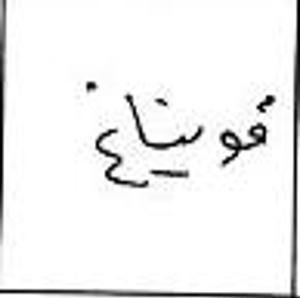 قويناغ